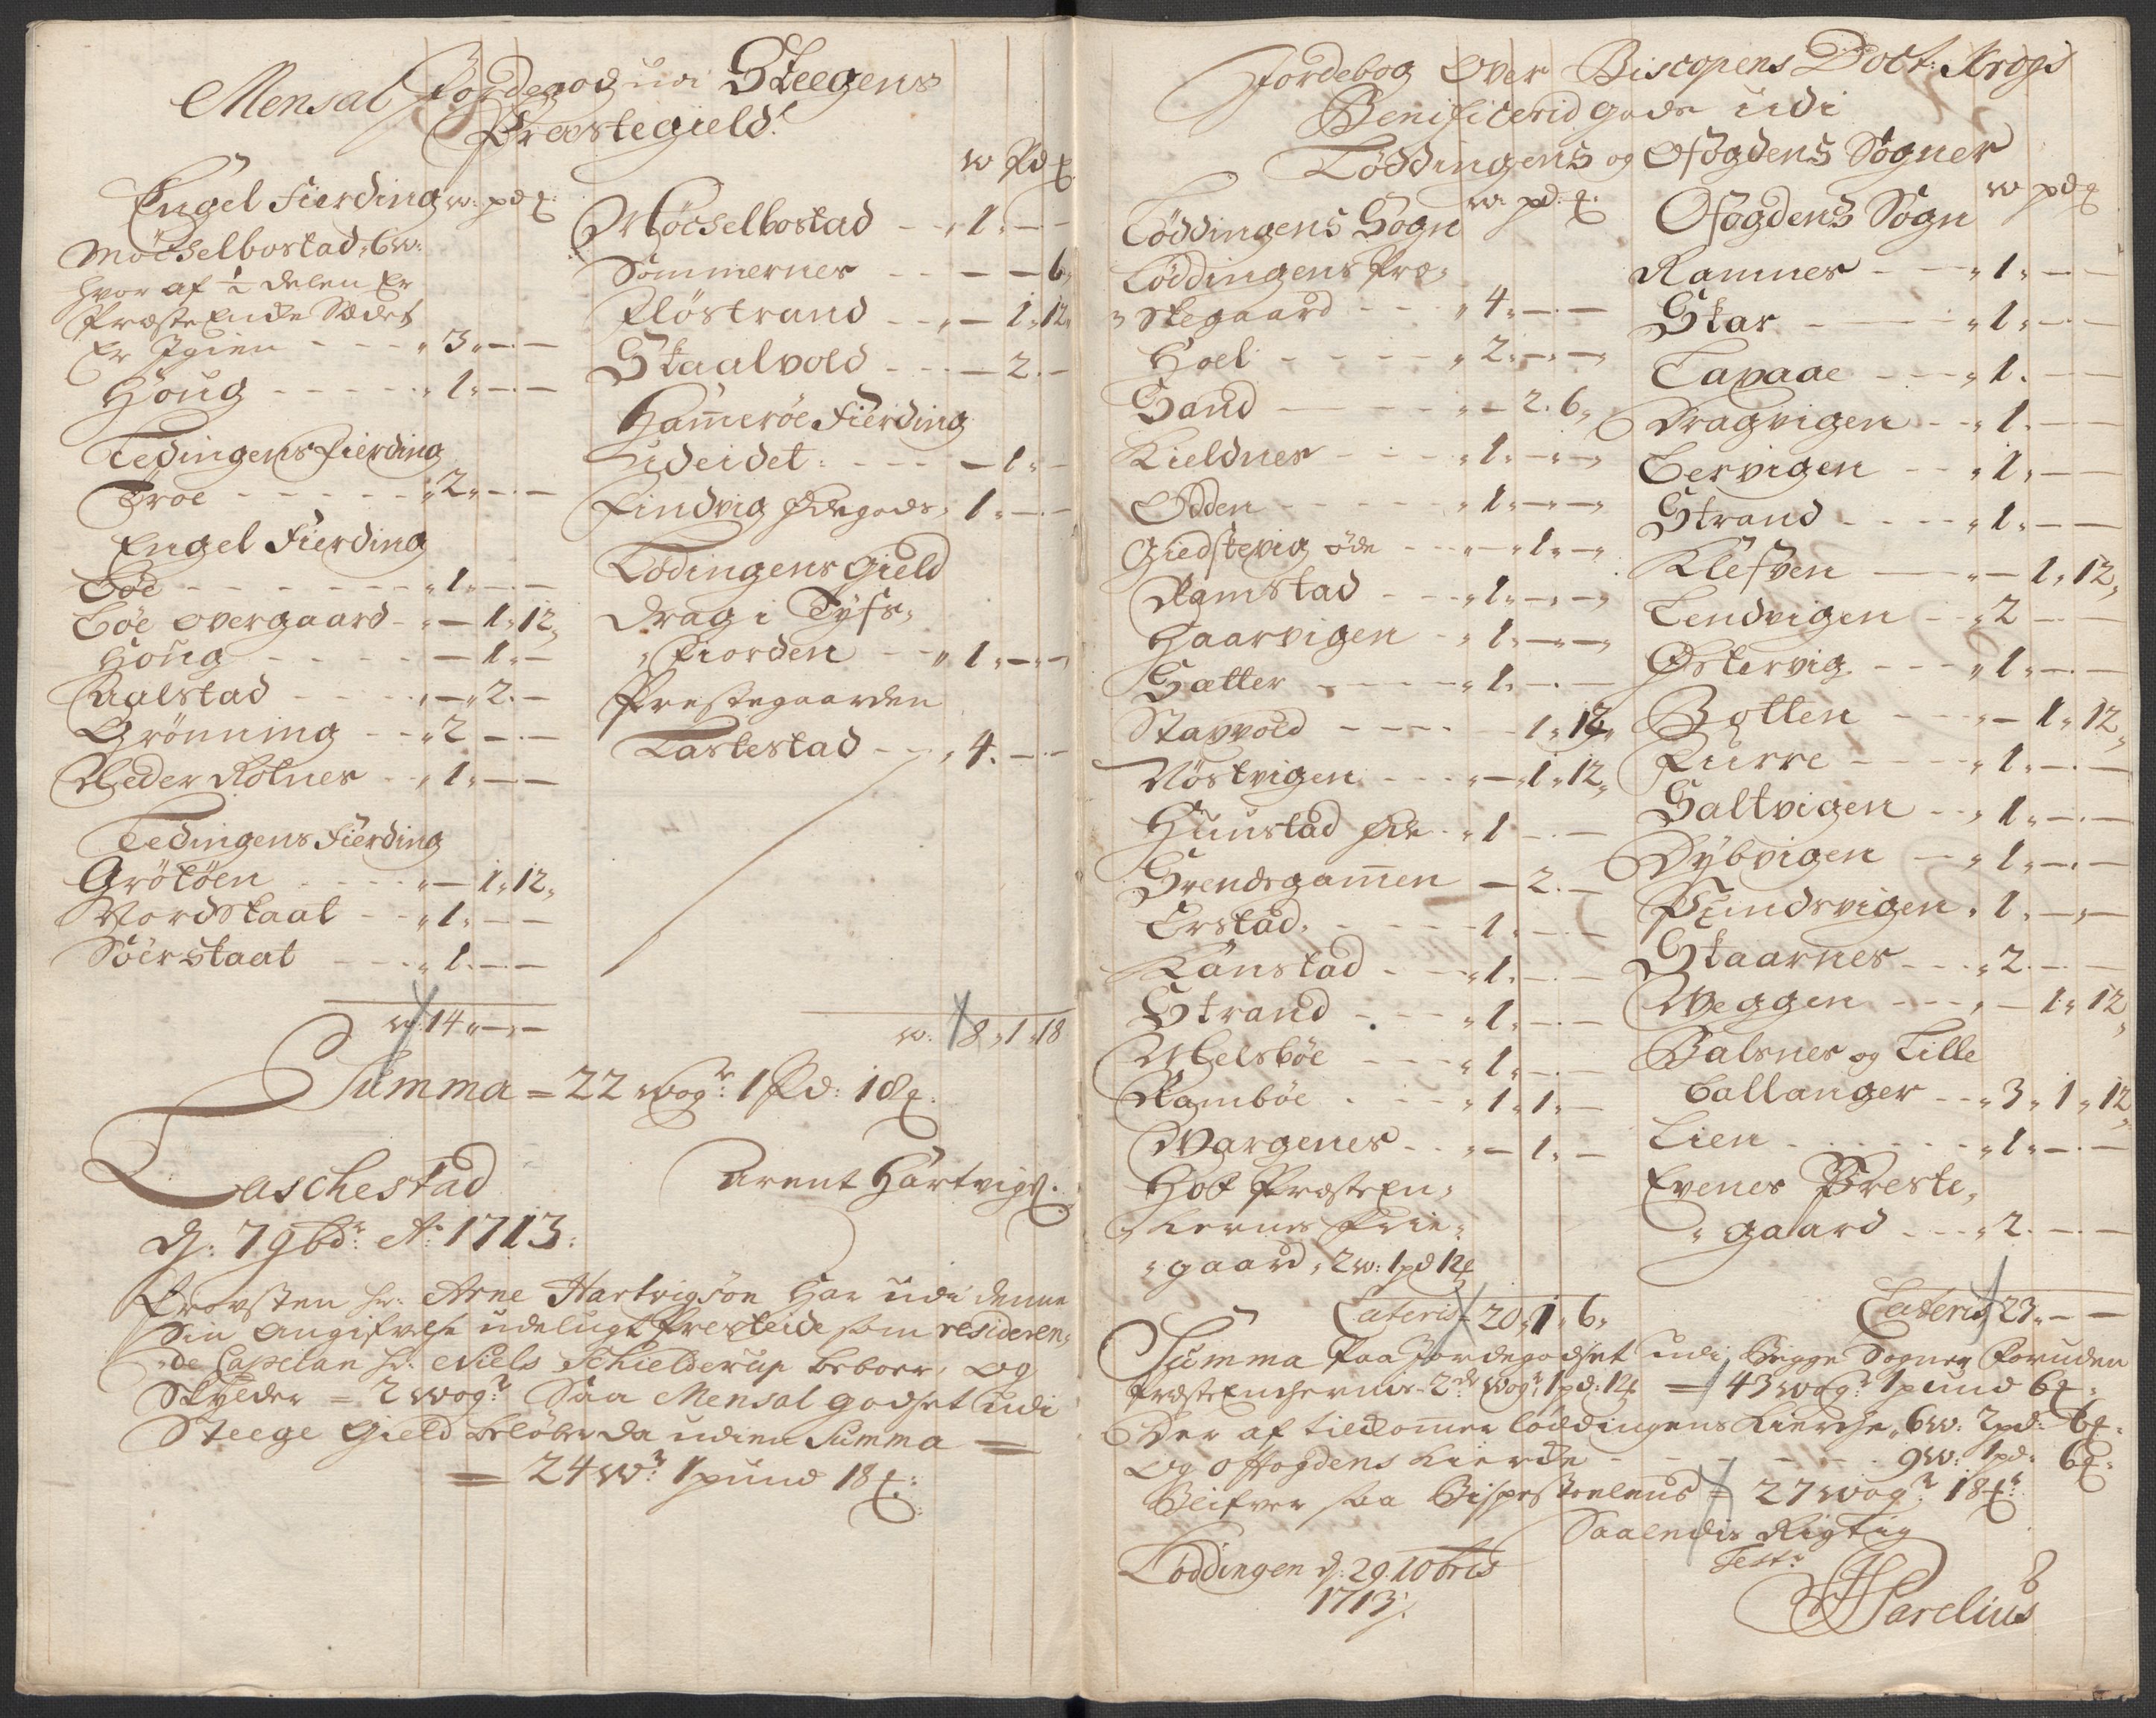 Mensal Jordegods udi Steegens
Præstegield.
Engel Fierding w: pd ℔:
Möchselbostad, 6 w:
hvor af ½ delen Er
Præste Enche Sædet
Er Igien - - - „ 3 „ — . —
Houg - - - - - „ 1 „ — . —
Ledingens Fierding
Troe - - - - - - „ 2 „ — . —
Engel Fierding
Böe - - - - - - - „ 1 „ — . —
Böe overgaard - „ — 1 „ 12 „
Houg - - - - - — 1 „ —
Aalstad - - - - - „ — „ 2 . —
Grönning - - „ 2 — . —
Neder Rötnes - - „ 1 „ — . —
Ledingens Fierding
Grötöen - - - - „ — 1 „ 12 „
Nordskaat - - „ 1 „ — —
Söerskaat - - - „ 1 . — . —
w: 14 „ — „ —
w Pd ℔
Möchselbostad - - „ 1 „ — —
Sommernes - - - — — 6 „
Flöstrand - - „ — 1 „ 12 „
Skaalvold - - - — 2 . —
Hameröe Fierding
Udeidet : - - - — 1 „ —
Findvig Ødegods „ 1 „ — . —
Lödingens gield
Drag i Tÿfs„
„ Fiorden - - - „ 1 „ — „ —
Prestegaarden
Laskestad - - „ 4 . — . —
w: 8 „ 1 „ 18
Summa = 22 wogr: 1 Pd: 18 ℔.
Laschestad
d: 7 9bdr: Ao: 1713:
Arent Hartvigs.
Provsten hr: Arne Hartvigsön Har udi denne
Sin Angifvelse udelugt Presteide som resideren„
„de Capelan hr: Niels Schielderup beboer, og
Skÿlder = 2 wogr: Saa Mensal godset udi
Steege Gield beløber da udi en Summa =
= 24 wr: 1 pund 18 ℔:
Jordebog Over Biscopens Doct: Krogs
Benificerid gods udi
Löddingens og Ofögdens Sogner
Löddingens Sogn w: pd: ℔:
Löddingens Præ„
„ stegaard - - - „ 4 „ — . —
Hoel - - - - - „ 2 „ — „ — „
Sand — - - - „ — 2 . 6 „
Kieldnes - - - - „ 1 „ — „ — „
Odden - - - - - „ 1 „ — „ — „
Giedstevig öde - - „ — „ 1 „ — „
Ramstad - - - „ 1 „ — „ — „
Haarvigen - „ 1 „ — „ — „
Sætter - - - - - „ 1 „ — . —
Stapvold - - - - - 1 „ 12 „
Nöstvigen - - - „ — „ 1 „ 12 „
Huustad öde - „ 1 — . —
Svendsgammen — 2 . —
Erstad „ - - - - - 1 „ — . —
Kanstad - - - „ 1 „ — . —
Strand - - - „ 1 „ — . —
Melsböe - - - „ 1 „ — . —
Ramböe - - - „ 1 „ 1 „ —
Wargenes - - „ — 1 „ —
Hof Præste En„
„ kernes Frie„
„ gaard „ 2 w: 1 pd 12 ℔
Lateris 20 „ 1 „ 6 „
Ofögdens Sogn w pd ℔
Ramnes - - - „ 1 „ — . —
Skar - - - - „ 1 „ — . —
Tapaae - - - „ 1 . — —
Dragvigen - - „ 1 . — —
Bervigen - - „ 1 „ — —
Strand - - - - „ 1 „ — —
Klefven — „ — 1 „ 12 „
Lendvigen - - „ 2 — —
Østervig - - - „ 1 „ — . —
Botten - - - „ — 1 „ 12 „
Furre - - - - „ 1 „ — . —
Saltvigen - - „ 1 „ — . —
Dÿbvigen - - „ 1 „ — . —
Pundsvigen „ 1 . — „ —
Skaarnes - - - „ 2 . — . —
Weggen - - - „ — 1 „ 12 „
Balsnes og Lille
Ballanger - - „ 3 „ 1 „ 12 „
Lien - - - - - - „ 1 „ — . —
Evenes Preste„
„ gaard - - - „ 2 . — . —
Lateris 23 „ — —
Summa Paa Jordegodset udi Begge Sogner Foruden
Præste Enchernis 2de wogr: 1 pd: 12 ℔ = 43 wogr: 1 pund 6 ℔:
Der af tilkommer löddingens Kierche „ 6 w: 2 pd: 6 ℔:
og offogdens Kierche - - - - - - - 9 w: 1 pd: 6 ℔:
Blifver saa Bispestoelens = 27 wogr: 18 ℔r
Saaledis Rigtig
Test:
Loddingen d: 29. 10bris
1713.
Parelius